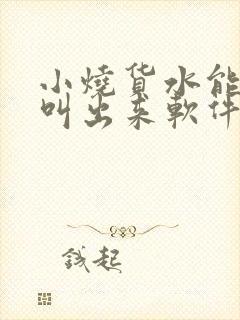 小燒货水能
叫出来軟件
钱起